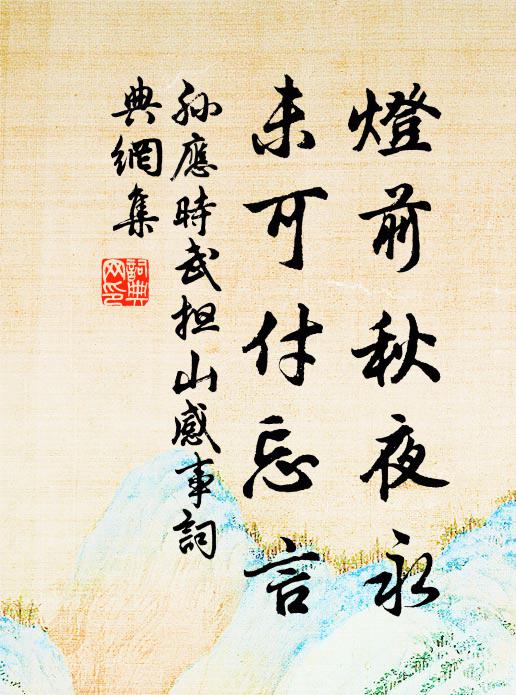 燈前秋夜永
未可付忘言
孫應時武担山感事詞
典網集
詞典
网印